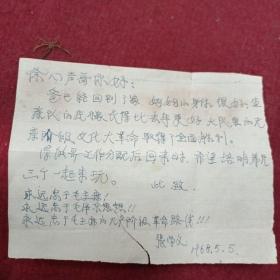 徐心声哥你好：
爸已经回到了家 妈妈的身体很好 全
家民的 比去年更好 大民里的无
产阶级文化大革命取得了全面胜利。
哥工作分配后回来时 希望 培明弟兄
三个一起来玩。 此致
永远忠于毛主席！
永远忠于毛泽东思想！！
永远忠于毛主席的无产阶级革命路线！！！
张 文
1968.5.5.